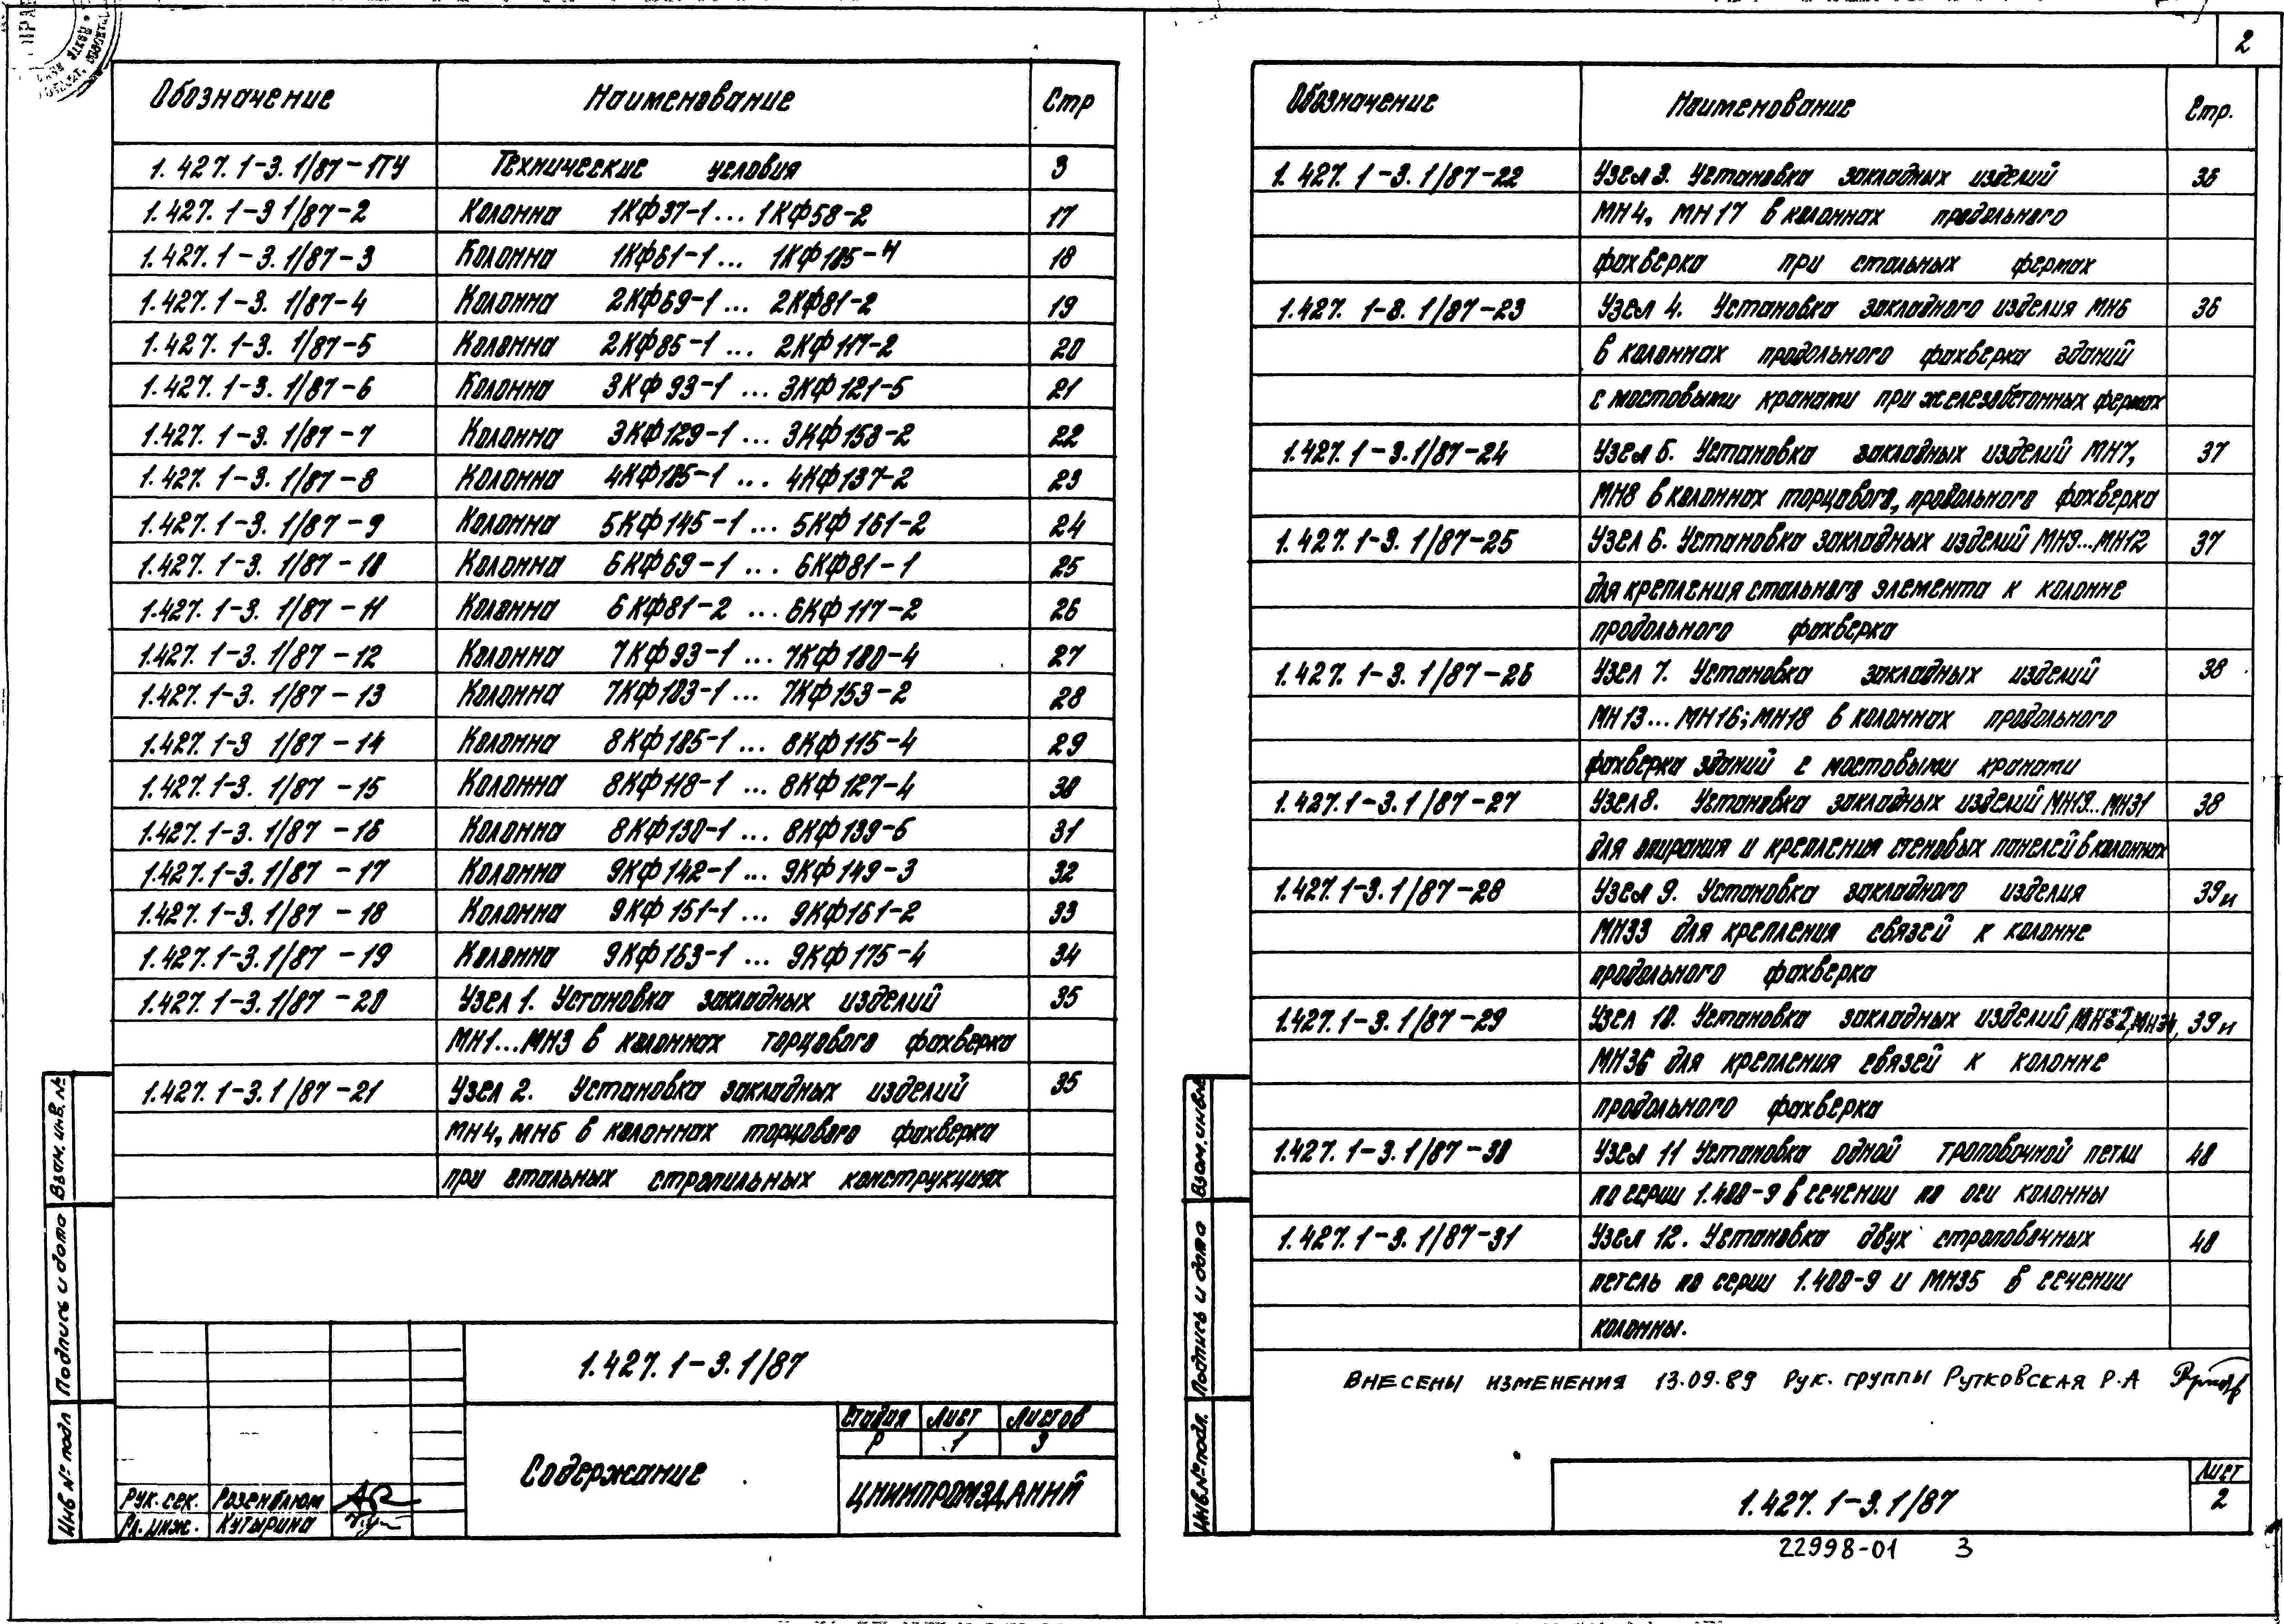 Обозначение Наименование Стр
1.427.1-3.1/87-1ТУ Технические условия 3
1.427.1-3 1/87-2 Колонна 1КФ37-1... 1КФ58-2 17
1.427.1-3.1/87-3 Колонна 1КФ61-1... 1КФ105-4 18
1.427.1-3.1/87-4 Колонна 2КФ69-1... 2КФ81-2 19
1.427.1-3.1/87-5 Колонна 2КФ85-1... 2КФ117-2 20
1.427.1-3.1/87-6 Колонна 3КФ93-1... 3КФ121-5 21
1.427.1-3.1/87-7 Колонна 3КФ129-1... 3КФ153-2 22
1.427.1-3.1/87-8 Колонна 4КФ105-1... 4КФ137-2 23
1.427.1-3.1/87-9 Колонна 5КФ145-1... 5КФ161-2 24
1.427.1-3.1/87-10 Колонна 6КФ69-1... 6КФ81-1 25
1.427.1-3.1/87-11 Колонна 6КФ81-2... 6КФ117-2 26
1.427.1-3.1/87-12 Колонна 7КФ93-1... 7КФ100-4 27
1.427.1-3.1/87-13 Колонна 7КФ103-1... 7КФ153-2 28
1.427.1-3 1/87-14 Колонна 8КФ105-1... 8КФ115-4 29
1.427.1-3.1/87-15 Колонна 8КФ118-1... 8КФ127-4 30
1.427.1-3.1/87-16 Колонна 8КФ130-1... 8КФ139-6 31
1.427.1-3.1/87-17 Колонна 9КФ142-1... 9КФ149-3 32
1.427.1-3.1/87-18 Колонна 9КФ151-1... 9КФ161-2 33
1.427.1-3.1/87-19 Колонна 9КФ163-1... 9КФ175-4 34
1.427.1-3.1/87-20 Узел 1. Установка закладных изделий 35
МН1...МН3 в колоннах торцового фахверка
1.427.1-3.1/87-21 Узел 2. Установка закладных изделий 35
МН4, МН5 в колоннах торцового фахверка
при стальных стропильных конструкциях
Взам. инв. №
Подпись и дата
Инв № подл
1.427.1-3.1/87
Содержание
Стадия Лист Листов
Р 1 3
ЦНИИПРОМЗДАНИЙ
Рук. сек. Розенблюм
Гл. инж. Кутырина
2
Обозначение Наименование Стр.
1.427.1-3.1/87-22 Узел 3. Установка закладных изделий 36
МН4, МН17 в колоннах продольного
фахверка при стальных фермах
1.427.1-3.1/87-23 Узел 4. Установка закладного изделия МН6 36
в колоннах продольного фахверка зданий
с мостовыми кранами при железобетонных фермах
1.427.1-3.1/87-24 Узел 5. Установка закладных изделий МН7, 37
МН8 в колоннах торцового, продольного фахверка
1.427.1-3.1/87-25 Узел 6. Установка закладных изделий МН9...МН12 37
для крепления стального элемента к колонне
продольного фахверка
1.427.1-3.1/87-26 Узел 7. Установка закладных изделий 38
МН13...МН16; МН18 в колоннах продольного
фахверка зданий с мостовыми кранами
1.427.1-3.1/87-27 Узел 8. Установка закладных изделий МН19...МН31 38
для опирания и крепления стеновых панелей в колоннах
1.427.1-3.1/87-28 Узел 9. Установка закладного изделия 39и
МН33 для крепления связей к колонне
продольного фахверка
1.427.1-3.1/87-29 Узел 10. Установка закладных изделий МН32, МН34, 39и
МН36 для крепления связей к колонне
продольного фахверка
1.427.1-3.1/87-30 Узел 11 Установка одной троповочной петли 40
по серии 1.400-9 в сечении по оси колонны
1.427.1-3.1/87-31 Узел 12. Установка двух строповочных 40
петель по серии 1.400-9 и МН35 в сечении
колонны.
ВНЕСЕНЫ ИЗМЕНЕНИЯ 13.09.89 Рук. группы Рутковская Р.А
Взам. инв. №
Подпись и дата
Инв. № подл.
1.427.1-3.1/87
Лист
2
22998-01 3